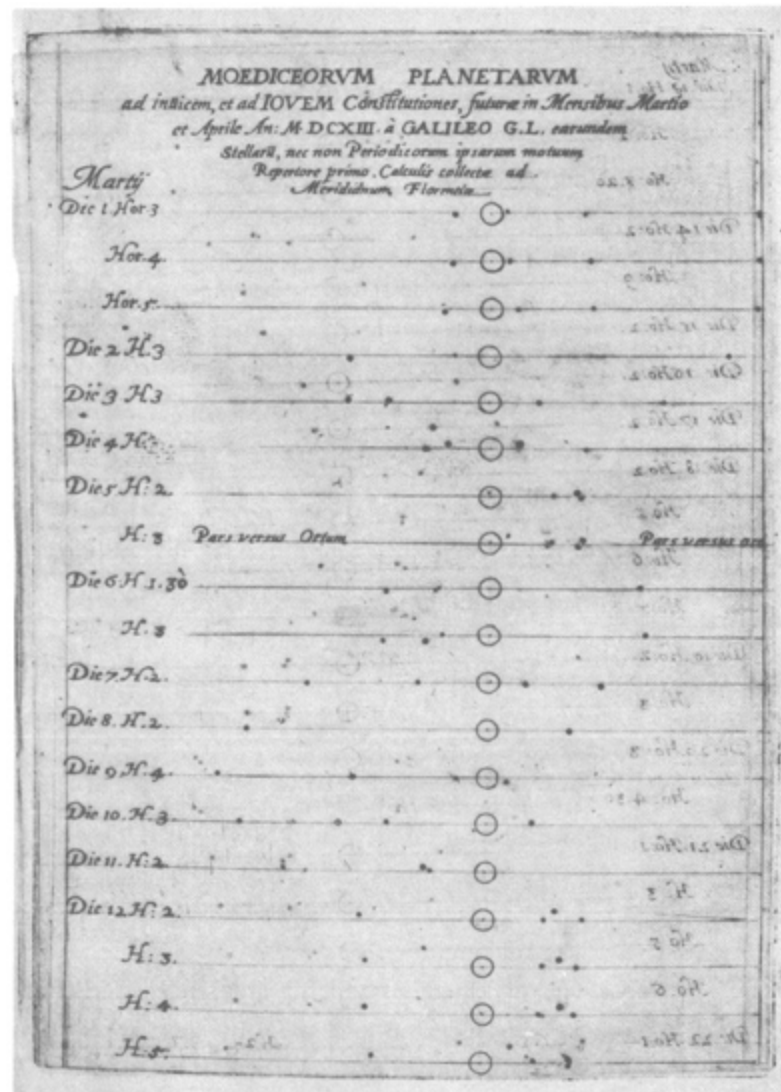 MOEDICEORVM PLANETARVM
ad inuicem, et ad IOVEM Constitutiones, futuræ in Mensibus Martio
et Aprile An: M DCXIII. à GALILEO G.L. earundem
Stellarũ, nec non Periodicorum ipsarum motuum
Repertore primo. Calculis collectæ ad
Meridianum Florentiæ
Martij
Die 1. Hor. 3
Hor. 4.
Hor. 5.
Die 2. H. 3
Die 3. H. 3
Die 4. H.
Die 5. H: 2.
H: 3 Pars versus Ortum Pars versus occ
Die 6. H. 1. 30
H: 3
Die 7. H. 2.
Die 8. H. 2
Die 9. H. 4.
Die 10. H. 3
Die 11. H: 2.
Die 12. H: 2.
H: 3.
H: 4
H: 5.